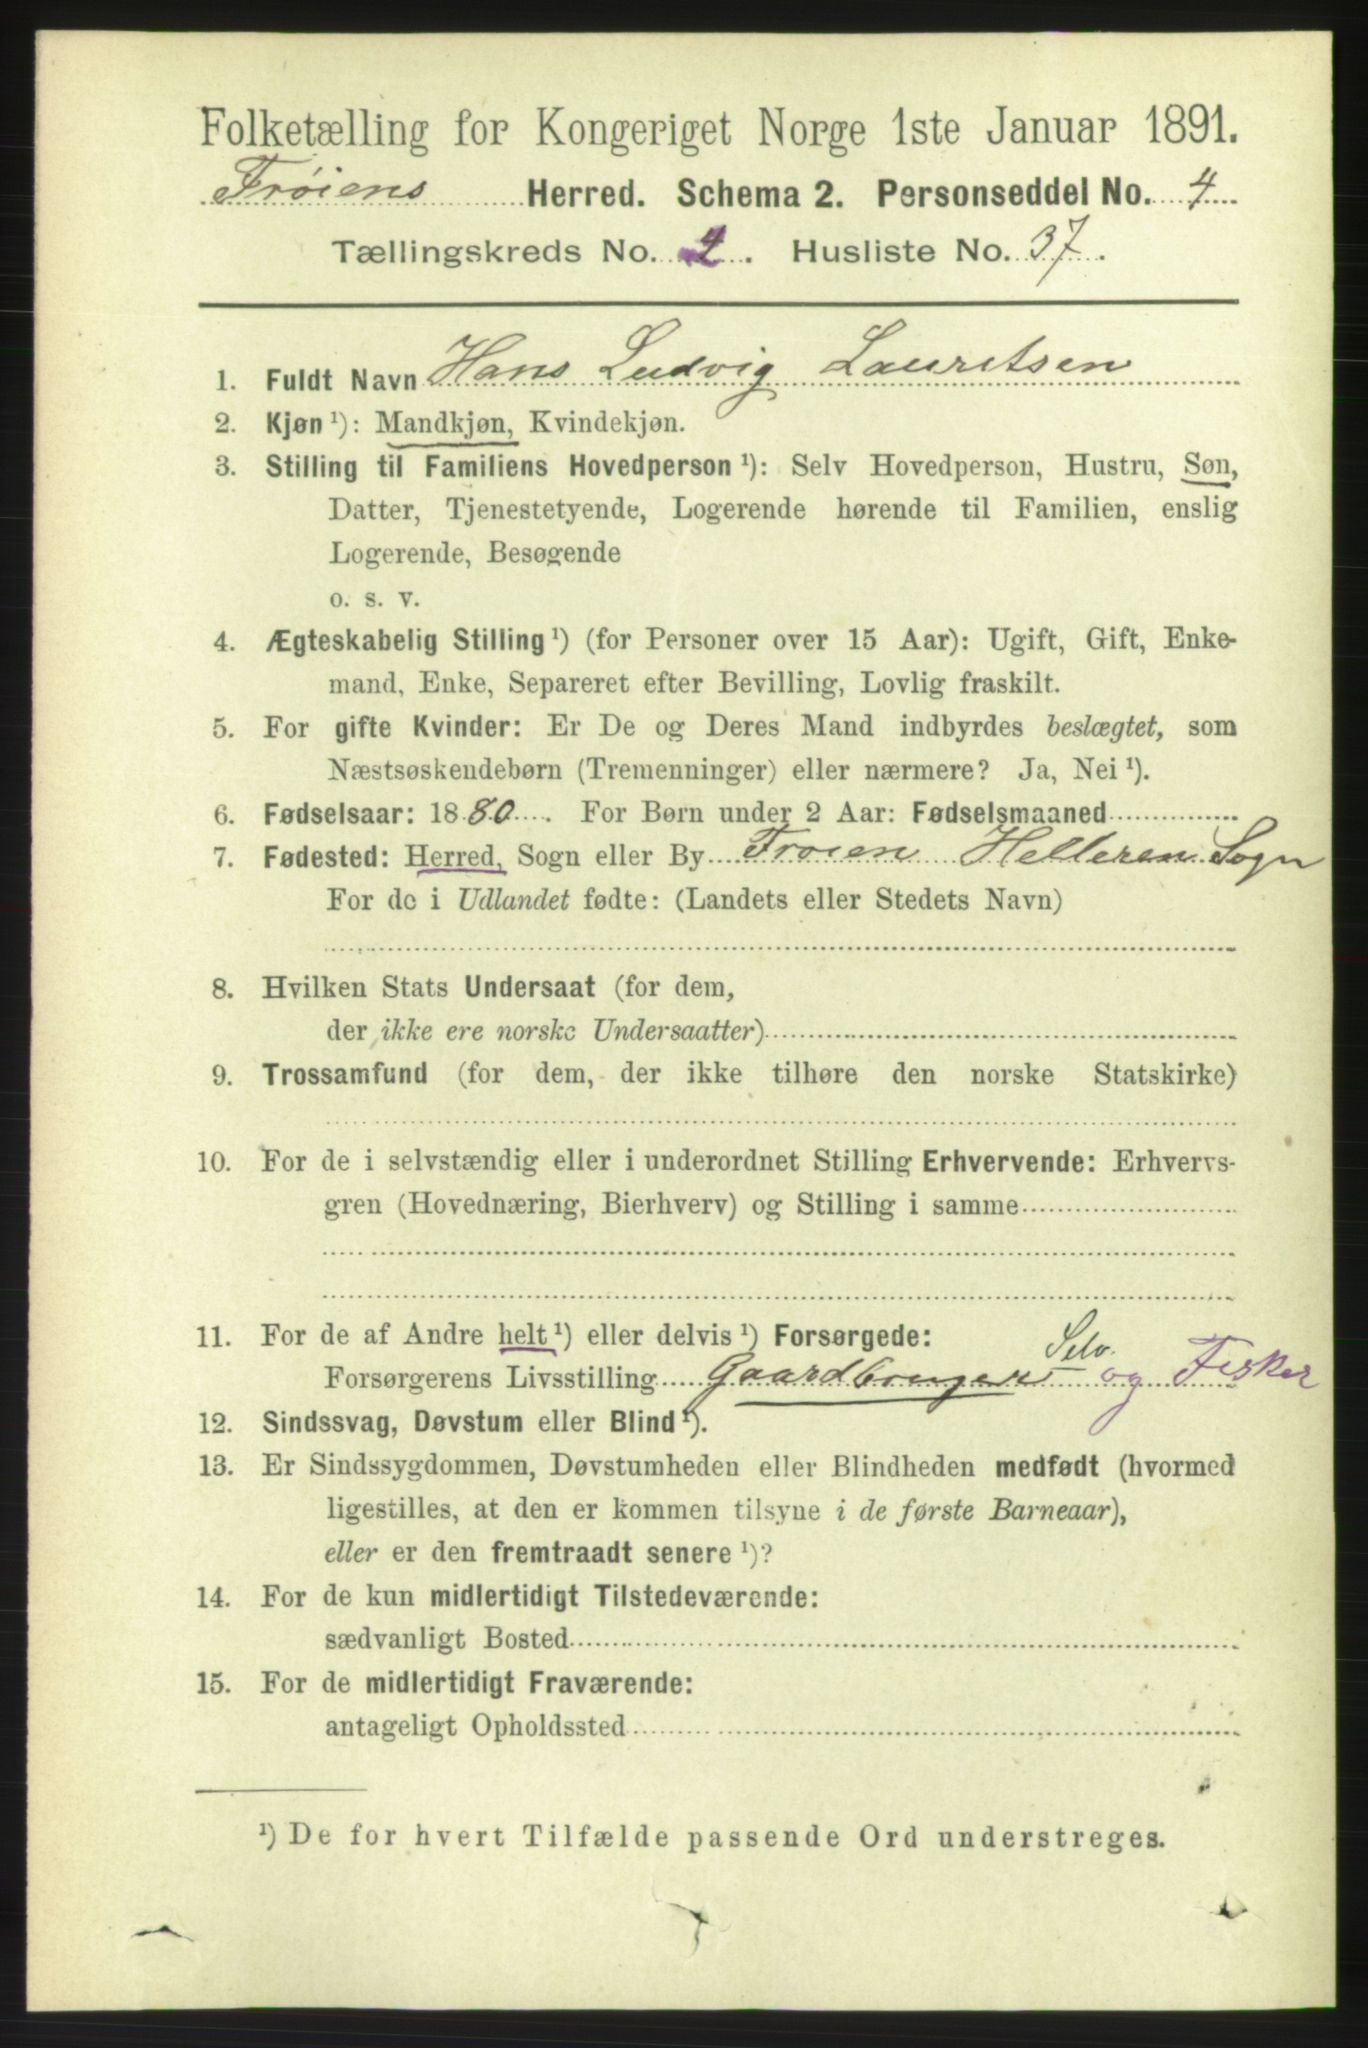 Folketælling for Kongeriget Norge 1ste Januar 1891.
Frøiens Herred. Schema 2. Personseddel No. 4
Tællingskreds No. 4. Husliste No. 37.
1. Fuldt Navn Hans Ludvig Lauritsen
2. Kjøn ¹): Mandkjøn, Kvindekjøn.
3. Stilling til Familiens Hovedperson ¹): Selv Hovedperson, Hustru, Søn,
Datter, Tjenestetyende, Logerende hørende til Familien, enslig
Logerende, Besøgende
o. s. v.
4. Ægteskabelig Stilling ¹) (for Personer over 15 Aar): Ugift, Gift, Enke-
mand, Enke, Separeret efter Bevilling, Lovlig fraskilt.
5. For gifte Kvinder: Er De og Deres Mand indbyrdes beslægtet, som
Næstsøskendebørn (Tremenninger) eller nærmere? Ja, Nei ¹).
6. Fødselsaar: 1880. For Børn under 2 Aar: Fødselsmaaned
7. Fødested: Herred, Sogn eller By Frøien Helleren Sogn
For de i Udlandet fødte: (Landets eller Stedets Navn)
8. Hvilken Stats Undersaat (for dem,
der ikke ere norske Undersaatter)
9. Trossamfund (for dem, der ikke tilhøre den norske Statskirke)
10. For de i selvstændig eller i underordnet Stilling Erhvervende: Erhvervs-
gren (Hovednæring, Bierhverv) og Stilling i samme
11. For de af Andre helt ¹) eller delvis ¹) Forsørgede:
Selv.
Forsørgerens Livsstilling Gaardbruger og Fisker
12. Sindssvag, Døvstum eller Blind ¹).
13. Er Sindssygdommen, Døvstumheden eller Blindheden medfødt (hvormed
ligestilles, at den er kommen tilsyne i de første Barneaar),
eller er den fremtraadt senere ¹)?
14. For de kun midlertidigt Tilstedeværende:
sædvanligt Bosted
15. For de midlertidigt Fraværende:
antageligt Opholdssted
¹) De for hvert Tilfælde passende Ord understreges.